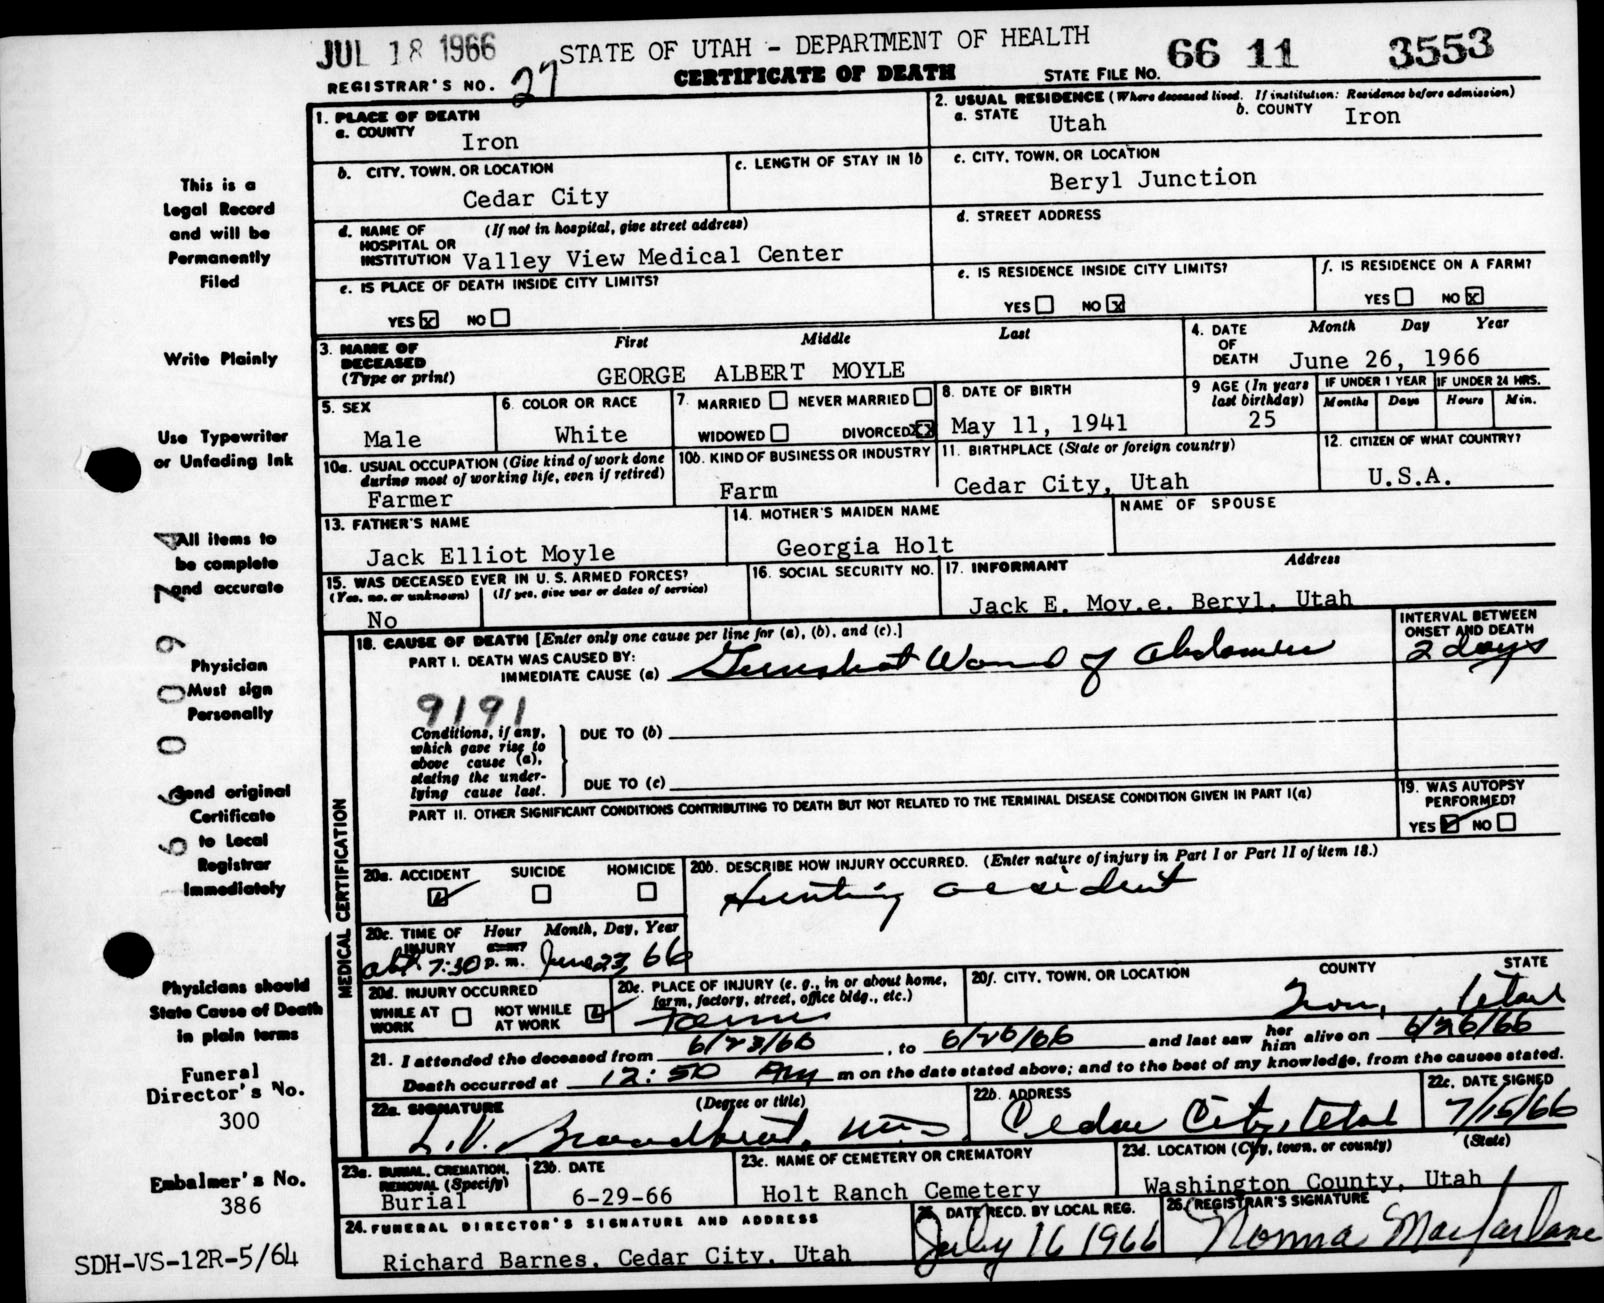 JUL 18 1966
STATE OF UTAH - DEPARTMENT OF HEALTH
66 11 3553
REGISTRAR'S NO. 27
CERTIFICATE OF DEATH
STATE FILE NO.
1. PLACE OF DEATH
a. COUNTY
Iron
2. USUAL RESIDENCE (Where deceased lived. If institution: Residence before admission)
a. STATE
Utah
b. COUNTY
Iron
b. CITY, TOWN, OR LOCATION
Cedar City
c. LENGTH OF STAY IN 1b
c. CITY, TOWN, OR LOCATION
Beryl Junction
d. NAME OF HOSPITAL OR INSTITUTION (If not in hospital, give street address)
Valley View Medical Center
d. STREET ADDRESS
e. IS PLACE OF DEATH INSIDE CITY LIMITS?
YES x NO
e. IS RESIDENCE INSIDE CITY LIMITS?
YES NO x
f. IS RESIDENCE ON A FARM?
YES NO x
3. NAME OF DECEASED (Type or print)
First Middle Last
GEORGE ALBERT MOYLE
4. DATE OF DEATH
Month Day Year
June 26, 1966
5. SEX
Male
6. COLOR OR RACE
White
7. MARRIED NEVER MARRIED
WIDOWED DIVORCED XX
8. DATE OF BIRTH
May 11, 1941
9 AGE (In years last birthday)
25
IF UNDER 1 YEAR
Months Days
IF UNDER 24 HRS.
Hours Min.
10a. USUAL OCCUPATION (Give kind of work done during most of working life, even if retired)
Farmer
10b. KIND OF BUSINESS OR INDUSTRY
Farm
11. BIRTHPLACE (State or foreign country)
Cedar City, Utah
12. CITIZEN OF WHAT COUNTRY?
U.S.A.
13. FATHER'S NAME
Jack Elliot Moyle
14. MOTHER'S MAIDEN NAME
Georgia Holt
NAME OF SPOUSE
15. WAS DECEASED EVER IN U. S. ARMED FORCES?
(Yes, no, or unknown) (If yes, give war or dates of service)
No
16. SOCIAL SECURITY NO.
17. INFORMANT Address
Jack E. Moy.e. Beryl, Utah
18. CAUSE OF DEATH [Enter only one cause per line for (a), (b), and (c).]
PART I. DEATH WAS CAUSED BY:
IMMEDIATE CAUSE (a) Gunshot Wound of Abdomen
INTERVAL BETWEEN ONSET AND DEATH
2 days
9191
Conditions, if any, which gave rise to above cause (a), stating the underlying cause last.
DUE TO (b)
DUE TO (c)
PART II. OTHER SIGNIFICANT CONDITIONS CONTRIBUTING TO DEATH BUT NOT RELATED TO THE TERMINAL DISEASE CONDITION GIVEN IN PART I(a)
19. WAS AUTOPSY PERFORMED?
YES NO
MEDICAL CERTIFICATION
20a. ACCIDENT SUICIDE HOMICIDE
20b. DESCRIBE HOW INJURY OCCURRED. (Enter nature of injury in Part I or Part II of item 18.)
Hunting accident
20c. TIME OF INJURY
Hour Month, Day, Year
abt 7:30 p. m. June 23, 66
20d. INJURY OCCURRED
WHILE AT WORK NOT WHILE AT WORK
20e. PLACE OF INJURY (e. g., in or about home, farm, factory, street, office bldg., etc.)
Farm
20f. CITY, TOWN, OR LOCATION COUNTY STATE
Iron, Utah
21. I attended the deceased from 6/23/66, to 6/26/66 and last saw her him alive on 6/26/66
Death occurred at 12:50 m on the date stated above; and to the best of my knowledge, from the causes stated.
22a. SIGNATURE (Degree or title)
L.V. Broadbent, M.D.
22b. ADDRESS
Cedar City, Utah
22c. DATE SIGNED
7/15/66
23a. BURIAL, CREMATION, REMOVAL (Specify)
Burial
23b. DATE
6-29-66
23c. NAME OF CEMETERY OR CREMATORY
Holt Ranch Cemetery
23d. LOCATION (City, town, or county) (State)
Washington County, Utah
24. FUNERAL DIRECTOR'S SIGNATURE AND ADDRESS
Richard Barnes, Cedar City, Utah
25. DATE RECD. BY LOCAL REG.
July 16 1966
26. REGISTRAR'S SIGNATURE
Norma Macfarlane
This is a
Legal Record
and will be
Permanently
Filed
Write Plainly
Use Typewriter
or Unfading Ink
All items to
be complete
and accurate
Physician
Must sign
Personally
Send original
Certificate
to Local
Registrar
Immediately
Physicians should
State Cause of Death
in plain terms
Funeral
Director's No.
300
Embalmer's No.
386
SDH-VS-12R-5/64